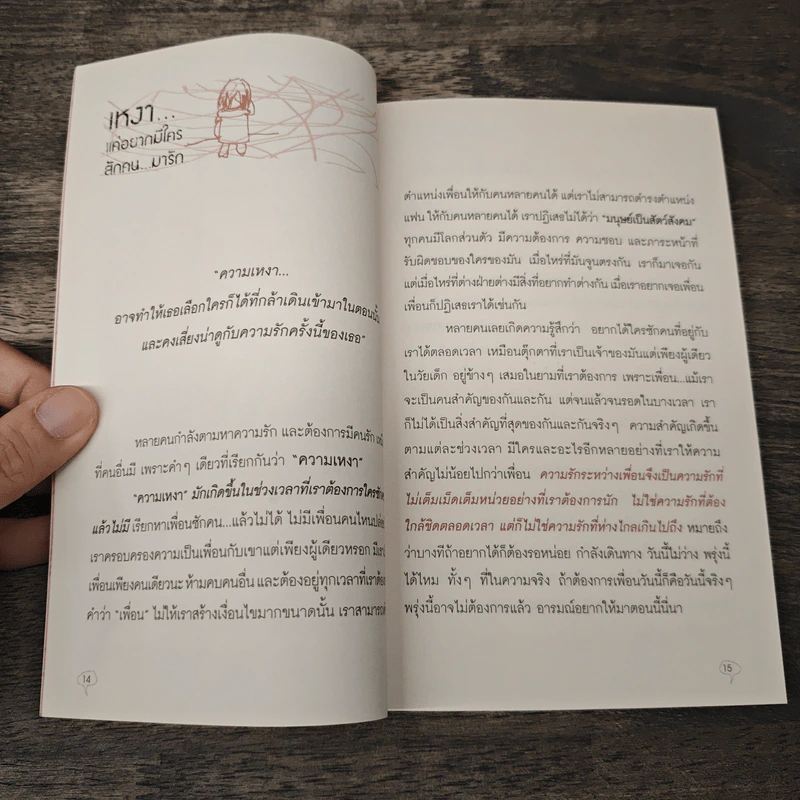 เหงา...
แค่อยากมีใคร
สักคน...มารัก
"ความเหงา...
อาจทำให้เธอเลือกใครก็ได้ที่กล้าเดินเข้ามาในตอนนั้น
และคงเสี่ยงน่าดูกับความรักครั้งนี้ของเธอ"
หลายคนกำลังตามหาความรัก และต้องการมีคนรัก
ที่คนอื่นมี เพราะคำๆ เดียวที่เรียกกันว่า "ความเหงา"
"ความเหงา" มักเกิดขึ้นในช่วงเวลาที่เราต้องการใครซัก
แล้วไม่มี เรียกหาเพื่อนซักคน...แล้วไม่ได้ ไม่มีเพื่อนคนไหน
เราครอบครองความเป็นเพื่อนกับเขาแต่เพียงผู้เดียวหรอก
เพื่อนเพียงคนเดียวนะ ห้ามคบคนอื่น และต้องอยู่ทุกเวลาที่เรา
คำว่า "เพื่อน" ไม่ให้เราสร้างเงื่อนไขมากขนาดนั้น เราสามารถ
14
ตำแหน่งเพื่อนให้กับคนหลายคนได้ แต่เราไม่สามารถดำรงตำแหน่ง
แฟน ให้กับคนหลายคนได้ เราปฏิเสธไม่ได้ว่า "มนุษย์เป็นสัตว์สังคม"
ทุกคนมีโลกส่วนตัว มีความต้องการ ความชอบ และภาระหน้าที่
รับผิดชอบของใครของมัน เมื่อไหร่ที่มันจูนตรงกัน เราก็มาเจอกัน
แต่เมื่อไหร่ที่ต่างฝ่ายต่างมีสิ่งที่อยากทำต่างกัน เมื่อเราอยากเจอเพื่อน
เพื่อนก็ปฏิเสธเราได้เช่นกัน
หลายคนเลยเกิดความรู้สึกว่า อยากได้ใครซักคนที่อยู่กับ
เราได้ตลอดเวลา เหมือนตุ๊กตาที่เราเป็นเจ้าของมันแต่เพียงผู้เดียว
ในวัยเด็ก อยู่ข้างๆ เสมอในยามที่เราต้องการ เพราะเพื่อน...แม้เรา
จะเป็นคนสำคัญของกันและกัน แต่จนแล้วจนรอดในบางเวลา เรา
ก็ไม่ได้เป็นสิ่งสำคัญที่สุดของกันและกันจริงๆ ความสำคัญเกิดขึ้น
ตามแต่ละช่วงเวลา มีใครและอะไรอีกหลายอย่างที่เราให้ความ
สำคัญไม่น้อยไปกว่าเพื่อน ความรักระหว่างเพื่อนจึงเป็นความรักที่
ไม่เต็มเม็ดเต็มหน่วยอย่างที่เราต้องการนัก ไม่ใช่ความรักที่ต้อง
ใกล้ชิดตลอดเวลา แต่ก็ไม่ใช่ความรักที่ห่างไกลเกินไปถึง หมายถึง
ว่าบางทีถ้าอยากได้ก็ต้องรอหน่อย กำลังเดินทาง วันนี้ไม่ว่าง พรุ่งนี้
ได้ไหม ทั้งๆ ที่ในความจริง ถ้าต้องการเพื่อนวันนี้ก็คือวันนี้จริงๆ
พรุ่งนี้อาจไม่ต้องการแล้ว อารมณ์อยากให้มาตอนนี้นี่นา
15